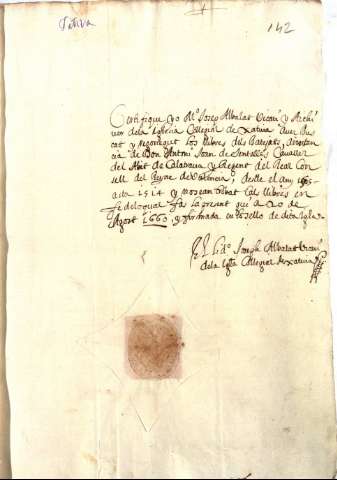 Xativa
142
Certifique yo Mº. Josep Albalat Vicari y Archi
ver dela Iglesia Collegial de Xativa aver bus
cat y regoneguit los llibres dels Batejats, a instan
cia de Don Antoni Joan de Sentelles Cavaller
del Abit de Calatrava y Regent del Real Con
sell del Regne de Valencia, desde el any
asta 1514 y no sean trobat tals llibres en
fe delo qual fas la present qui a 20 de
Agost 1660, y firmada en lo sello de dita Iglª.
El Lidº. Joseph Albalat Vicari
dela Iglª. Collegial de Xativa